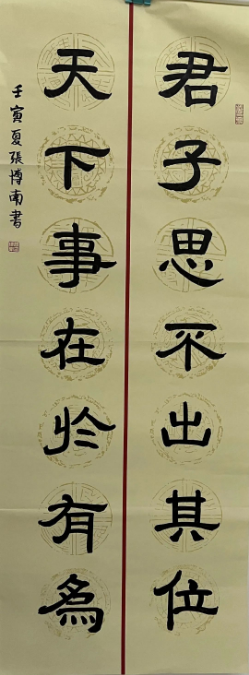 君子思不出其位
天下事在於有為
壬寅夏張博南書